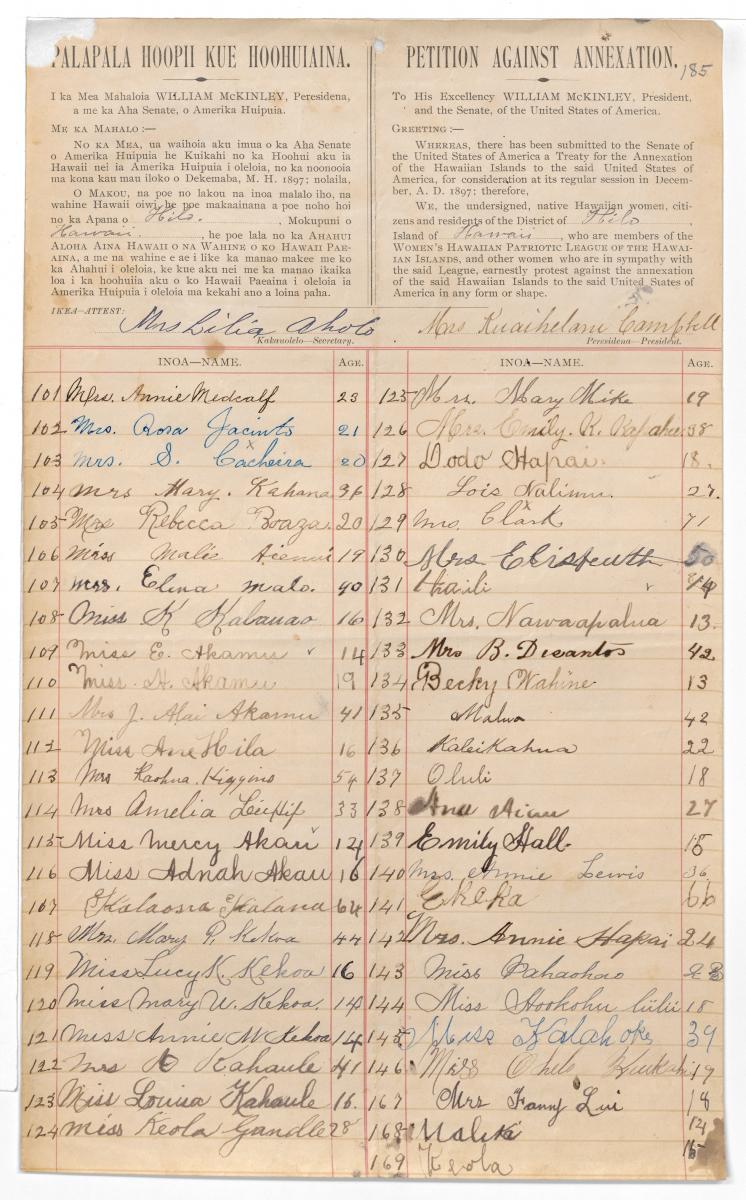 PALAPALA HOOPII KUE HOOHUIAINA.
I ka Mea Mahaloia WILLIAM McKINLEY, Peresidena,
a me ka Aha Senate, o Amerika Huipuia.
ME KA MAHALO:—
NO KA MEA, ua waihoia aku imua o ka Aha Senate
o Amerika Huipuia he Kuikahi no ka Hoohui aku ia
Hawaii nei ia Amerika Huipuia i oleloia, no ka noonooia
ma kona kau mau iloko o Dekemaba, M. H. 1897; nolaila,
O MAKOU, na poe no lakou na inoa malalo iho, na
wahine Hawaii oiwi he poe makaainana a poe noho hoi
no ka Apana o Hilo. , Mokupuni o
Hawaii. , he poe lala no ka AHAHUI
ALOHA AINA HAWAII O NA WAHINE O KO HAWAII PAE-
AINA, a me na wahine e ae i like ka manao makee me ko
ka Ahahui i oleloia, ke kue aku nei me ka manao ikaika
loa i ka hoohuiia aku o ko Hawaii Paeaina i oleloia ia
Amerika Huipuia i oleloia ma kekahi ano a loina paha.
IKEA—ATTEST:
Mrs Lilia Aholo
Kakauolelo—Secretary.
PETITION AGAINST ANNEXATION.
185
To His Excellency WILLIAM McKINLEY, President,
and the Senate, of the United States of America.
GREETING:—
WHEREAS, there has been submitted to the Senate of
the United States of America a Treaty for the Annexation
of the Hawaiian Islands to the said United States of
America, for consideration at its regular session in Decem-
ber, A. D. 1897; therefore,
WE, the undersigned, native Hawaiian women, citi-
zens and residents of the District of Hilo ,
Island of Hawaii , who are members of the
WOMEN'S HAWAIIAN PATRIOTIC LEAGUE OF THE HAWAI-
IAN ISLANDS, and other women who are in sympathy with
the said League, earnestly protest against the annexation
of the said Hawaiian Islands to the said United States of
America in any form or shape.
Mrs Kuaihelani Campbell
Peresidena—President.
INOA—NAME. AGE.
101 Mrs. Annie Medcalf 23
102 Mrs. Rosa Jacinto 21
103 Mrs. S. Cacheira 20
104 Mrs Mary. Kahana 36
105 Mrs Rebecca Boaza. 20
106 Miss Malie 19
107 Mrs. Elena Malo. 40
108 Miss K Kabanao 16
109 Miss E. Akamu 14
110 Miss. H. Akamu 19
111 Mrs J. Alai Akamu 41
112 Miss Ane Hila 16
113 Mrs Kaohua Higgins 54
114 Mrs Amelia Lee Hip 33
115 Miss Mercy Akau 12
116 Miss Adnah Akau 16
107 Kalaosia Kalana 64
118 Mrs. Mary P. Kekoa 44
119 Miss Lucy K. Kekoa 16
120 Miss Mary U. Kekoa. 14
121 Miss Annie M Kekoa 14
122 Mrs Kahaule 41
123 Miss Louisa Kahaule 16.
124 Miss Keola Gandle 28
INOA—NAME. AGE.
125 Mrs. Mary Mike 19
126 Mrs. Emily. K. 38
127 Dodo Hapai. 18.
128 Lois Nalimu. 27.
129 Mrs. Clark 71
130 Mrs 50
131 Haili
132 Mrs. Nawaapalua 13.
133 Mrs B. Desantos 42
134 Becky Wahine 13
135 Malua 42
136 Kaleikahua 22
137 Oluli 18
138 Ana Aiau 27
139 Emily Hall. 15
140 Mrs. Annie Lewis 36
141 Ekeka 66
142 Mrs. Annie Hapai 24
143 Miss Pahaohao
144 Miss Hookohu liilii 18
145 Miss Kalahoke 39
146 Miss 19
167 Mrs Fanny Lui 18
168 Maleki 14
169 Keola 15